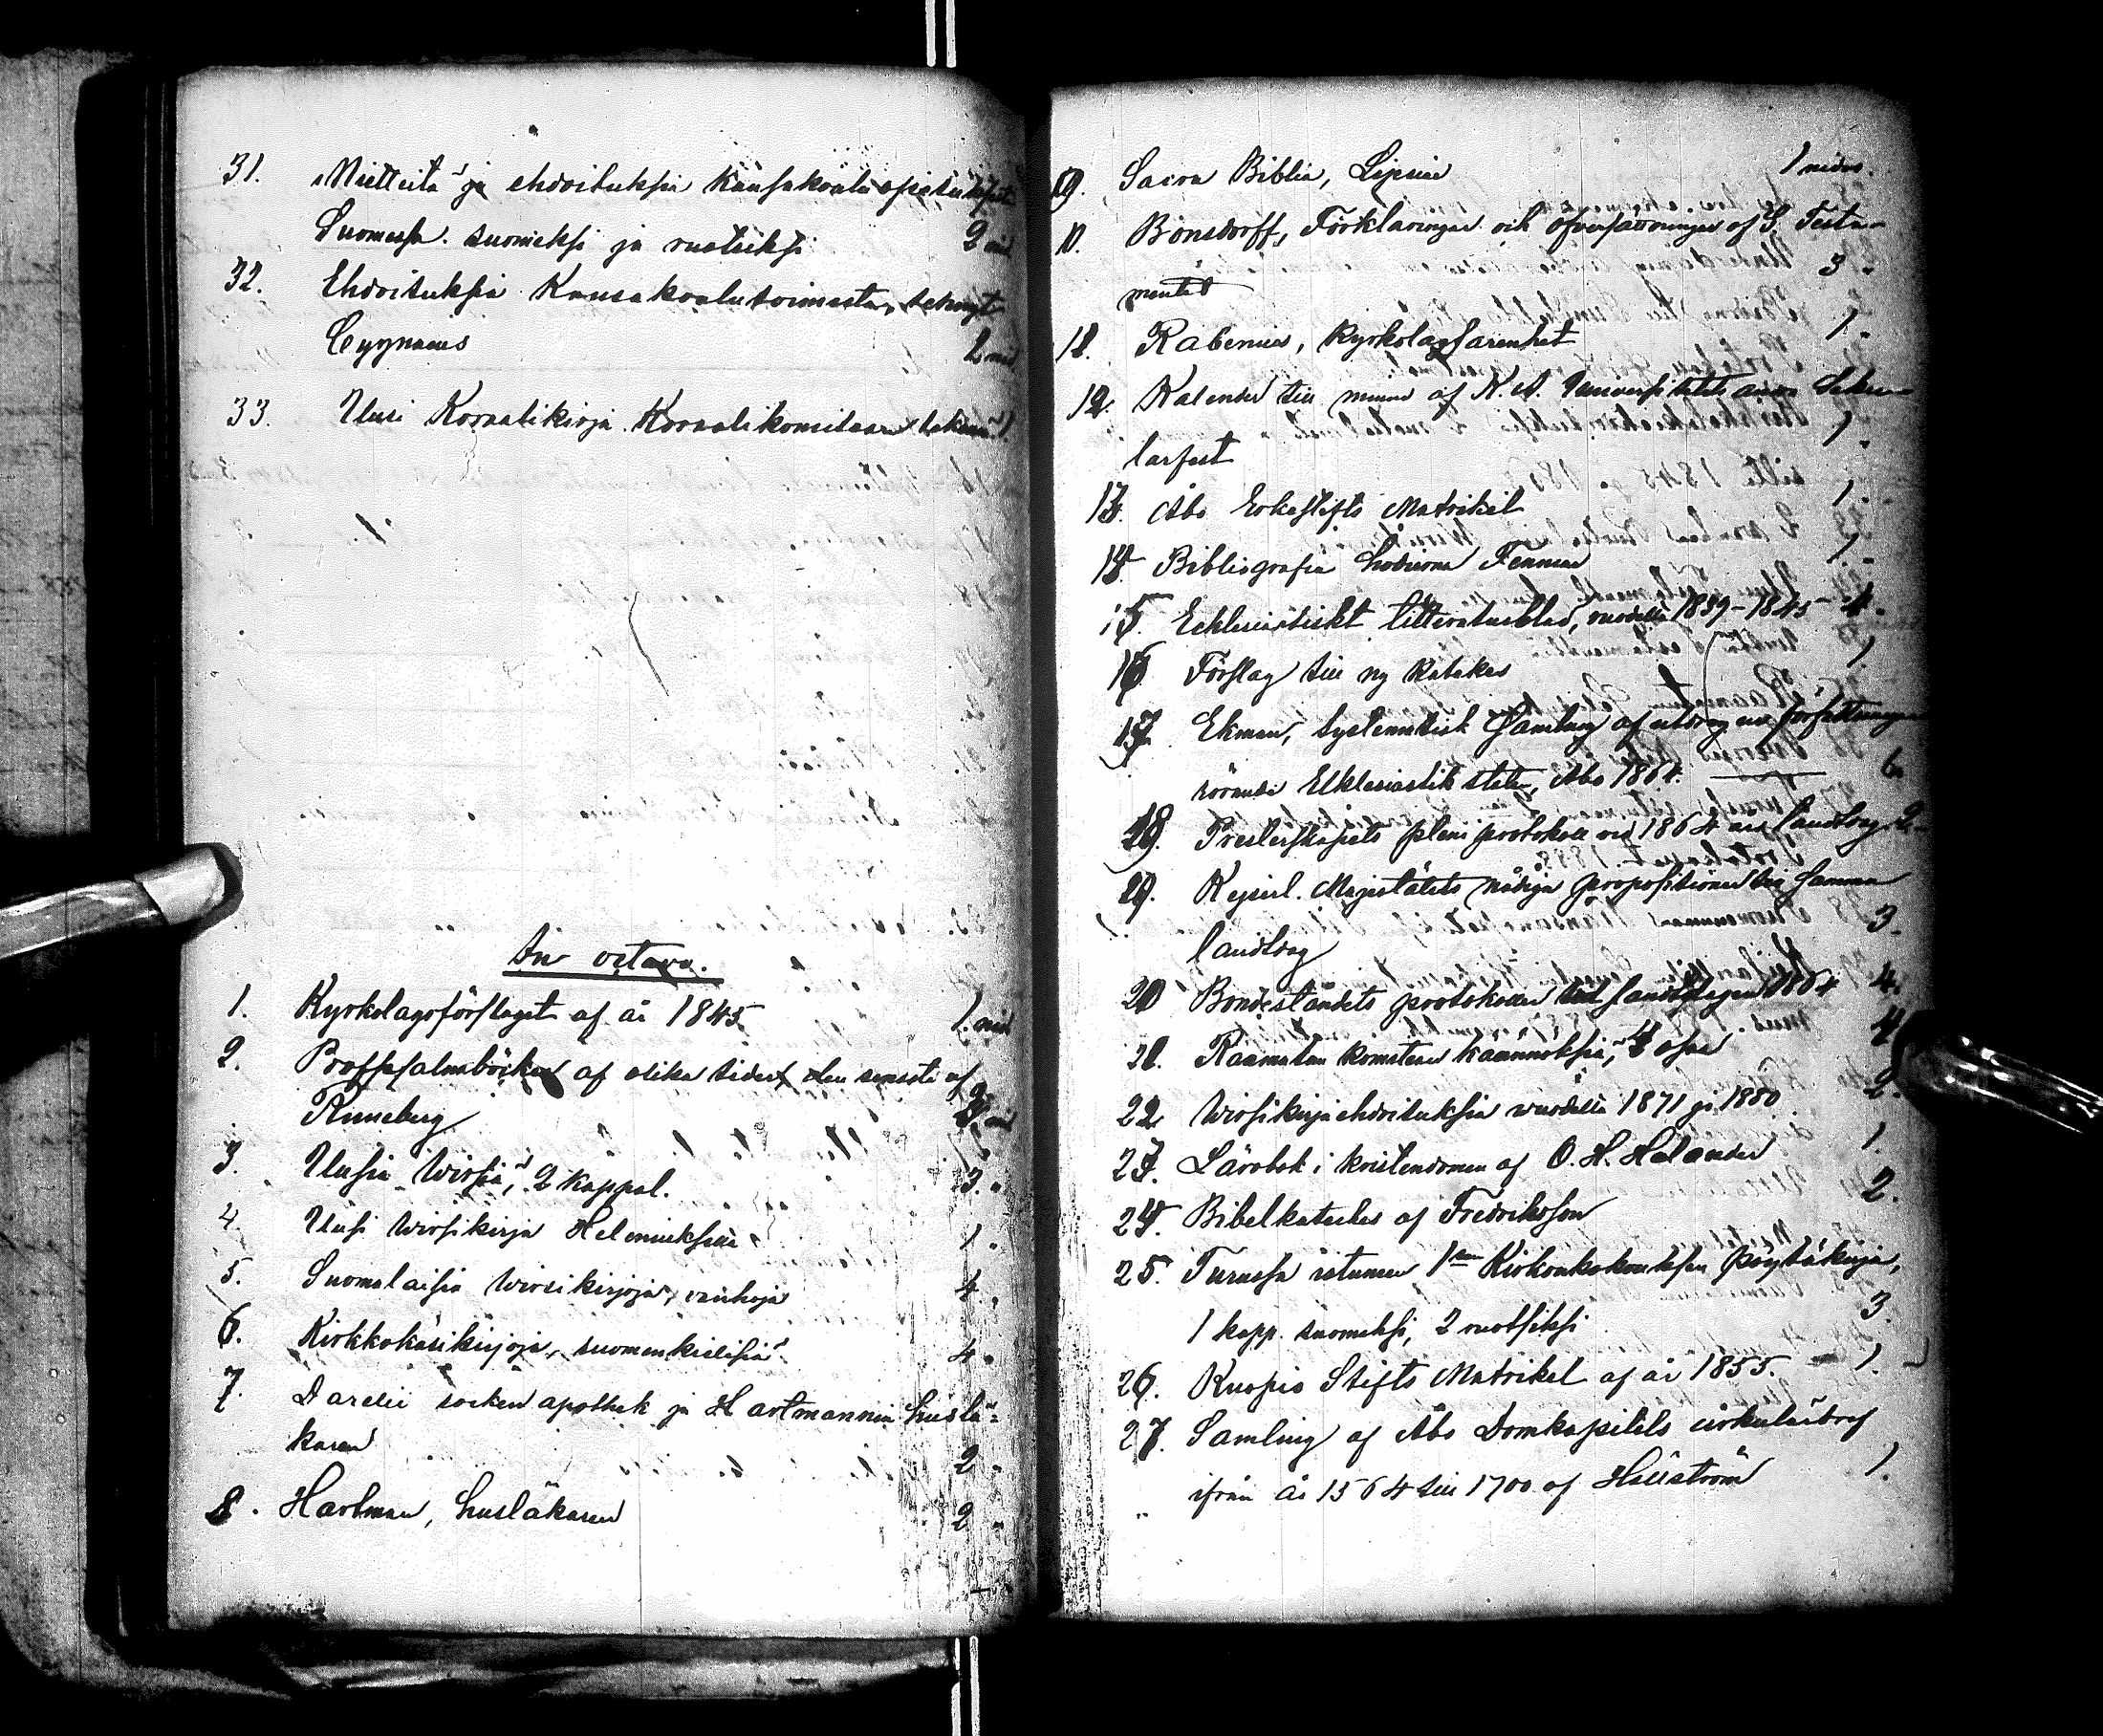 31. "Mietteitä" ja ehdoituksia kansakoulu opetuksesta
Suomessa. suomeksi ja ruotsiksi 2 nid
32. Ehdoituksia Kansakoulutoimesta, tehnyt
Cygnaeus 2 nid
33. Uusi Koraalikirja. Koraalikomitean tekemä 1.
In octavo.
1. Kyrkolagsförslaget af år 1845 1. nid
2. Profpsalmböcker af olika tider, den senaste af
Runeberg 3. nid
3. Uusia Wirsiä, 2 kappal. 3. "
4. Uusi Wirsikirja Heleniuksen 1 "
5. Suomalaisia Wirsikirjoja, vanhoja 4. "
6. Kirkkokäsikirjoja, suomenkielisiä 4 "
7. Darelii socken apothek ja Hartmannin huslä-
karen 2 "
8. Hartman, husläkaren 2 "
9. Sacra Biblia, Lipsiae 1 nidos.
10. Bonsdorff, Förklaringar och öfversättningar af G. Testa-
mentet 3 "
11. Rabenius, Kyrkolagfarenhet 1 "
12. Kalender till minne af K. A. Universitetets andra Seku-
larfest 1 "
13. Åbo Erkestifts Matrikel 1 "
14. Bibliografia hodierna Fenniae 1 "
15. Ecklesiastiskt litteraturblad, vuosilta 1839-1845 4 "
16 Förslag till ny Katekes 1
17. Ekman, Systematisk Samling af utdrag ur författningar
rörande Ecklesiastik staten, Åbo 1864. 6
18. Presterskapets pleni protokoll vid 1864 års landtdag 2 -
19. Kejserl. Majestätets nådiga propositioner till samma
landtdag 3.
20 Bondeståndets protokoller vid landtdagen 1864 4.
21. Raamatun komitean käännöksiä, 4 osaa 4
22 Wirsikirja ehdoituksia vuosilta 1871 ja 1880 2.
23. Lärobok i kristendomen af O. H. Helander 1.
24. Bibelkatekes af Fredriksson 2.
25. Turussa istuneen 1sen Kirkonkokouksen Pöytäkirja,
1 kapp. suomeksi, 2 ruotsiksi 3.
26. Kuopio Stifts Matrikel af år 1855. 1.
27. Samling af Åbo Domkapitels cirkulärbref
ifrån år 1564 till 1700 af Hallström 1.